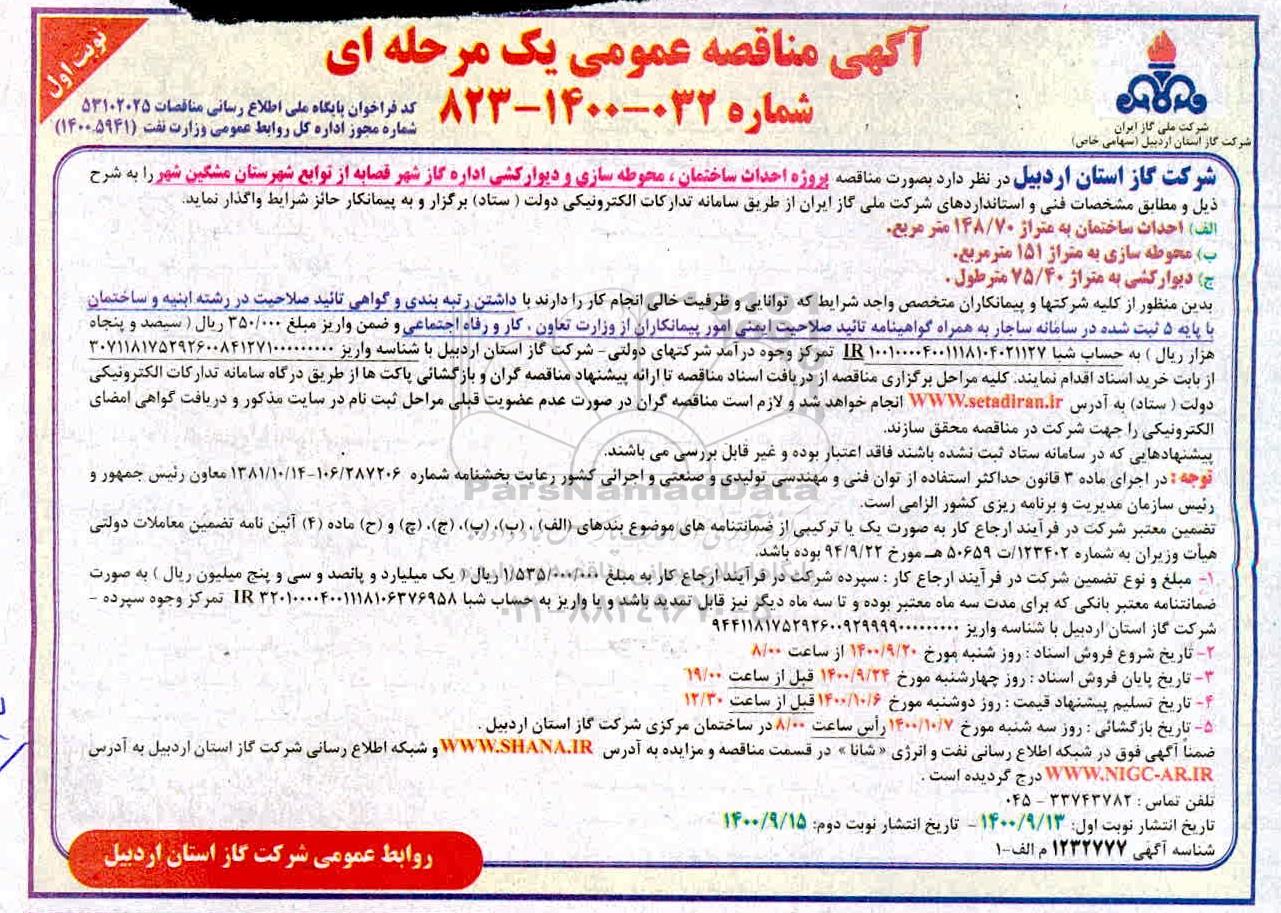 نوبت اول
آگهی مناقصه عمومی یک مرحله ای
شماره ۰۳۲-۱۴۰۰-۸۲۳
کد فراخوان پایگاه ملی اطلاع رسانی مناقصات ۵۳۱۰۲۰۲۵
شماره مجوز اداره کل روابط عمومی وزارت نفت (۱۴۰۰.۵۹۴۱)
شرکت ملی گاز ایران
شرکت گاز استان اردبیل (سهامی خاص)
شرکت گاز استان اردبیل در نظر دارد بصورت مناقصه پروژه احداث ساختمان ، محوطه سازی و دیوارکشی اداره گاز شهر قصابه از توابع شهرستان مشگین شهر را به شرح
ذیل و مطابق مشخصات فنی و استانداردهای شرکت ملی گاز ایران از طریق سامانه تدارکات الکترونیکی دولت ( ستاد) برگزار و به پیمانکار حائز شرایط واگذار نماید.
الف) احداث ساختمان به متراژ ۱۴۸/۷۰ متر مربع.
ب) محوطه سازی به متراژ ۱۵۱ مترمربع.
ج) دیوارکشی به متراژ ۷۵/۴۰ مترطول .
بدین منظور از کلیه شرکتها و پیمانکاران متخصص واجد شرایط که توانایی و ظرفیت خالی انجام کار را دارند با داشتن رتبه بندی و گواهی تائید صلاحیت در رشته ابنیه و ساختمان
با پایه ۵ ثبت شده در سامانه ساجار به همراه گواهینامه تائید صلاحیت ایمنی امور پیمانکاران از وزارت تعاون ، کار و رفاه اجتماعی و ضمن واریز مبلغ ۳۵۰/۰۰۰ ریال ( سیصد و پنجاه
هزار ریال ) به حساب شبا IR ۱۰۰۱۰۰۰۰۴۰۰۱۱۱۸۱۰۴۰۲۱۱۲۷ تمرکز وجوه درآمد شرکتهای دولتی- شرکت گاز استان اردبیل با شناسه واریز ۳۰۷۱۱۸۱۷۵۲۹۲۶۰۰۸۴۱۲۷۱۰۰۰۰۰۰۰۰۰
از بابت خرید اسناد اقدام نمایند. کلیه مراحل برگزاری مناقصه از دریافت اسناد مناقصه تا ارائه پیشنهاد مناقصه گران و بازگشائی پاکت ها از طریق درگاه سامانه تدارکات الکترونیکی
دولت ( ستاد) به آدرس WWW.setadiran.ir انجام خواهد شد و لازم است مناقصه گران در صورت عدم عضویت قبلی مراحل ثبت نام در سایت مذکور و دریافت گواهی امضای
الکترونیکی را جهت شرکت در مناقصه محقق سازند.
پیشنهادهایی که در سامانه ستاد ثبت نشده باشند فاقد اعتبار بوده و غیر قابل بررسی می باشند.
ParsNamadData
توجه : در اجرای ماده ۳ قانون حداکثر استفاده از توان فنی و مهندسی تولیدی و صنعتی و اجرائی کشور رعایت بخشنامه شماره ۱۰۶/۲۸۷۲۰۶-۱۳۸۱/۱۰/۱۴ معاون رئیس جمهور و
رئیس سازمان مدیریت و برنامه ریزی کشور الزامی است.
تضمین معتبر شرکت در فرآیند ارجاع کار به صورت یک یا ترکیبی از ضمانتنامه های موضوع بندهای (الف) ، (ب)، (پ)، (ج)، (چ) و (ح) ماده (۴) آئین نامه تضمین معاملات دولتی
هیأت وزیران به شماره ۱۲۳۴۰۲/ت ۵۰۶۵۹ هـ مورخ ۹۴/۹/۲۲ بوده باشد.
۱- مبلغ و نوع تضمین شرکت در فرآیند ارجاع کار : سپرده شرکت در فرآیند ارجاع کار به مبلغ ۱/۵۳۵/۰۰۰/۰۰۰ ریال ( یک میلیارد و پانصد و سی و پنج میلیون ریال ) به صورت
ضمانتنامه معتبر بانکی که برای مدت سه ماه معتبر بوده و تا سه ماه دیگر نیز قابل تمدید باشد و یا واریز به حساب شبا IR ۳۲۰۱۰۰۰۰۴۰۰۱۱۱۸۱۰۶۳۷۶۹۵۸ تمرکز وجوه سپرده -
شرکت گاز استان اردبیل با شناسه واریز ۹۴۴۱۱۸۱۷۵۲۹۲۶۰۰۹۲۹۹۹۹۰۰۰۰۰۰۰۰۰
۲- تاریخ شروع فروش اسناد : روز شنبه مورخ ۱۴۰۰/۹/۲۰ از ساعت ۸/۰۰
۳- تاریخ پایان فروش اسناد : روز چهارشنبه مورخ ۱۴۰۰/۹/۲۴ قبل از ساعت ۱۹/۰۰
۴- تاریخ تسلیم پیشنهاد قیمت : روز دوشنبه مورخ ۱۴۰۰/۱۰/۶ قبل از ساعت ۱۲/۳۰
۵- تاریخ بازگشائی : روز سه شنبه مورخ ۱۴۰۰/۱۰/۷ رأس ساعت ۸/۰۰ در ساختمان مرکزی شرکت گاز استان اردبیل .
ضمناً آگهی فوق در شبکه اطلاع رسانی نفت و انرژی « شانا » در قسمت مناقصه و مزایده به آدرس WWW.SHANA.IR و شبکه اطلاع رسانی شرکت گاز استان اردبیل به آدرس
WWW.NIGC-AR.IR درج گردیده است .
تلفن تماس : ۳۳۷۴۳۷۸۲ - ۰۴۵
تاریخ انتشار نوبت اول: ۱۴۰۰/۹/۱۳ - تاریخ انتشار نوبت دوم: ۱۴۰۰/۹/۱۵
شناسه آگهی ۱۲۳۲۷۷۷ م الف-۱
روابط عمومی شرکت گاز استان اردبیل